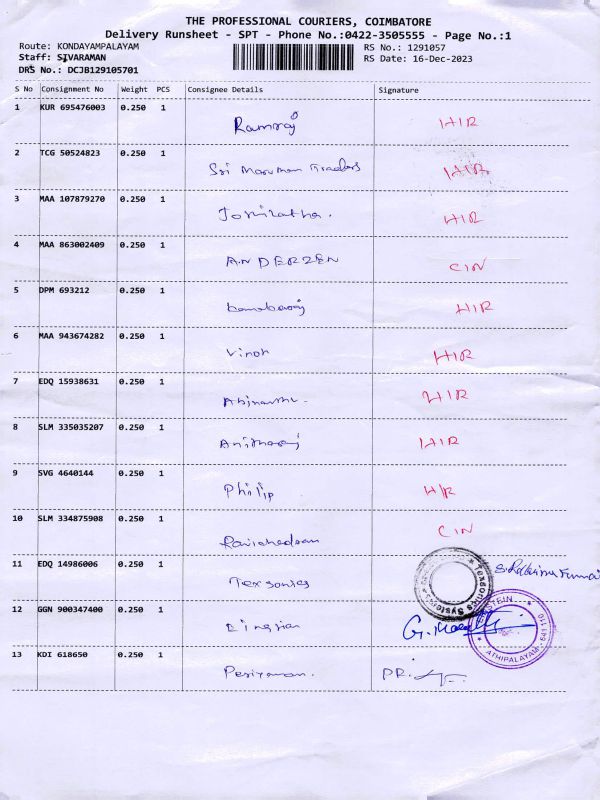 THE PROFESSIONAL COURIERS, COIMBATORE
Delivery Runsheet - SPT - Phone No.:0422-3505555 - Page No.:1
Route: KONDAYAMPALAYAM
Staff: SIVARAMAN
DRS No.: DCJB129105701
RS No.: 1291057
RS Date: 16-Dec-2023
S No Consignment No Weight PCS Consignee Details Signature
1 KUR 695476003 0.250 1 Ramraj HIR
2 TCG 50524823 0.250 1 Sri Traders HIR
3 MAA 107879270 0.250 1 HIR
4 MAA 863002409 0.250 1 ANDERZEN CIN
5 DPM 693212 0.250 1 HIR
6 MAA 943674282 0.250 1 Vinoth HIR
7 EDQ 15938631 0.250 1 HIR
8 SLM 335035207 0.250 1 HIR
9 SVG 4640144 0.250 1 Philip HIR
10 SLM 334875908 0.250 1 CIN
11 EDQ 14986006 0.250 1 Texsonics
Texsonics Systems
12 GGN 900347400 0.250 1
ATHIPALAYAM 641110
13 KDI 618650 0.250 1 PR.